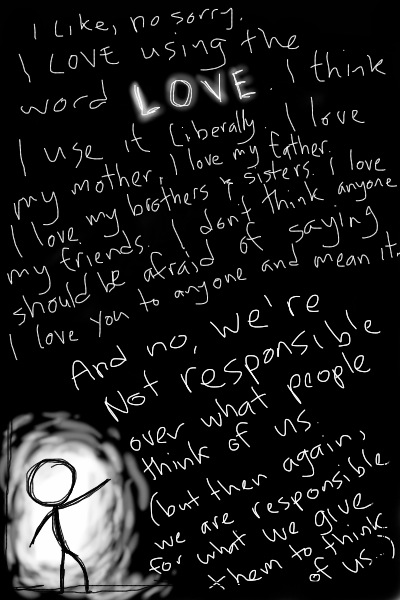 I like, no sorry.
I LOVE using the
word LOVE. I think
I use it liberally. I love
my mother, I love my father.
I love my brothers & sisters. I love
my friends. I don't think anyone
should be afraid of saying
I love you to anyone and mean it.
And no, we're
Not responsible
over what people
think of us.
(but then again,
we are responsible
for what we give
them to think
of us..)